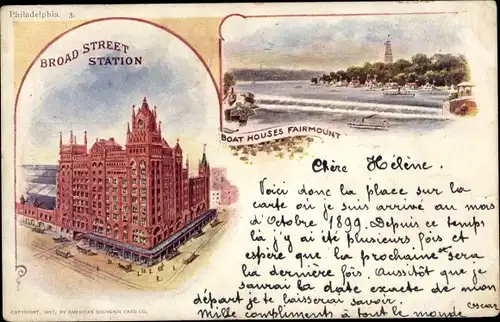 Philadelphia. 3.
BROAD STREET
STATION
BOAT HOUSES FAIRMOUNT
Chère Hélène.
Voici donc la place sur la
carte où je suis arrivé au mois
d'Octobre 1899. Depuis ce temps
là j'y ai été plusieurs fois et
espère que la prochaine sera
la dernière fois. Aussitôt que je
saurai la date exacte de mon
départ je te laisserai savoir.
Mille compliments à tout le monde
Oscar
COPYRIGHT, 1897, BY AMERICAN SOUVENIR CARD CO.